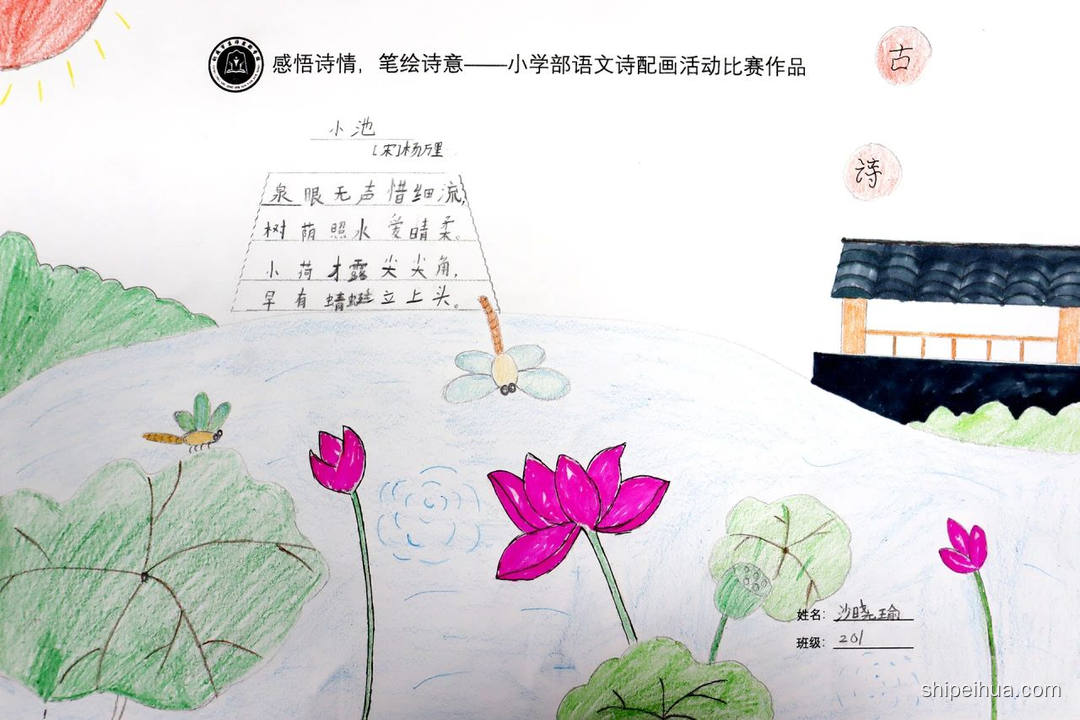 感悟诗情，笔绘诗意——小学部语文诗配画活动比赛作品
古
诗
小池
[宋]杨万里
泉眼无声惜细流，
树荫照水爱晴柔。
小荷才露尖尖角，
早有蜻蜓立上头。
姓名：沙晓瑜
班级：201
shipeihua.com